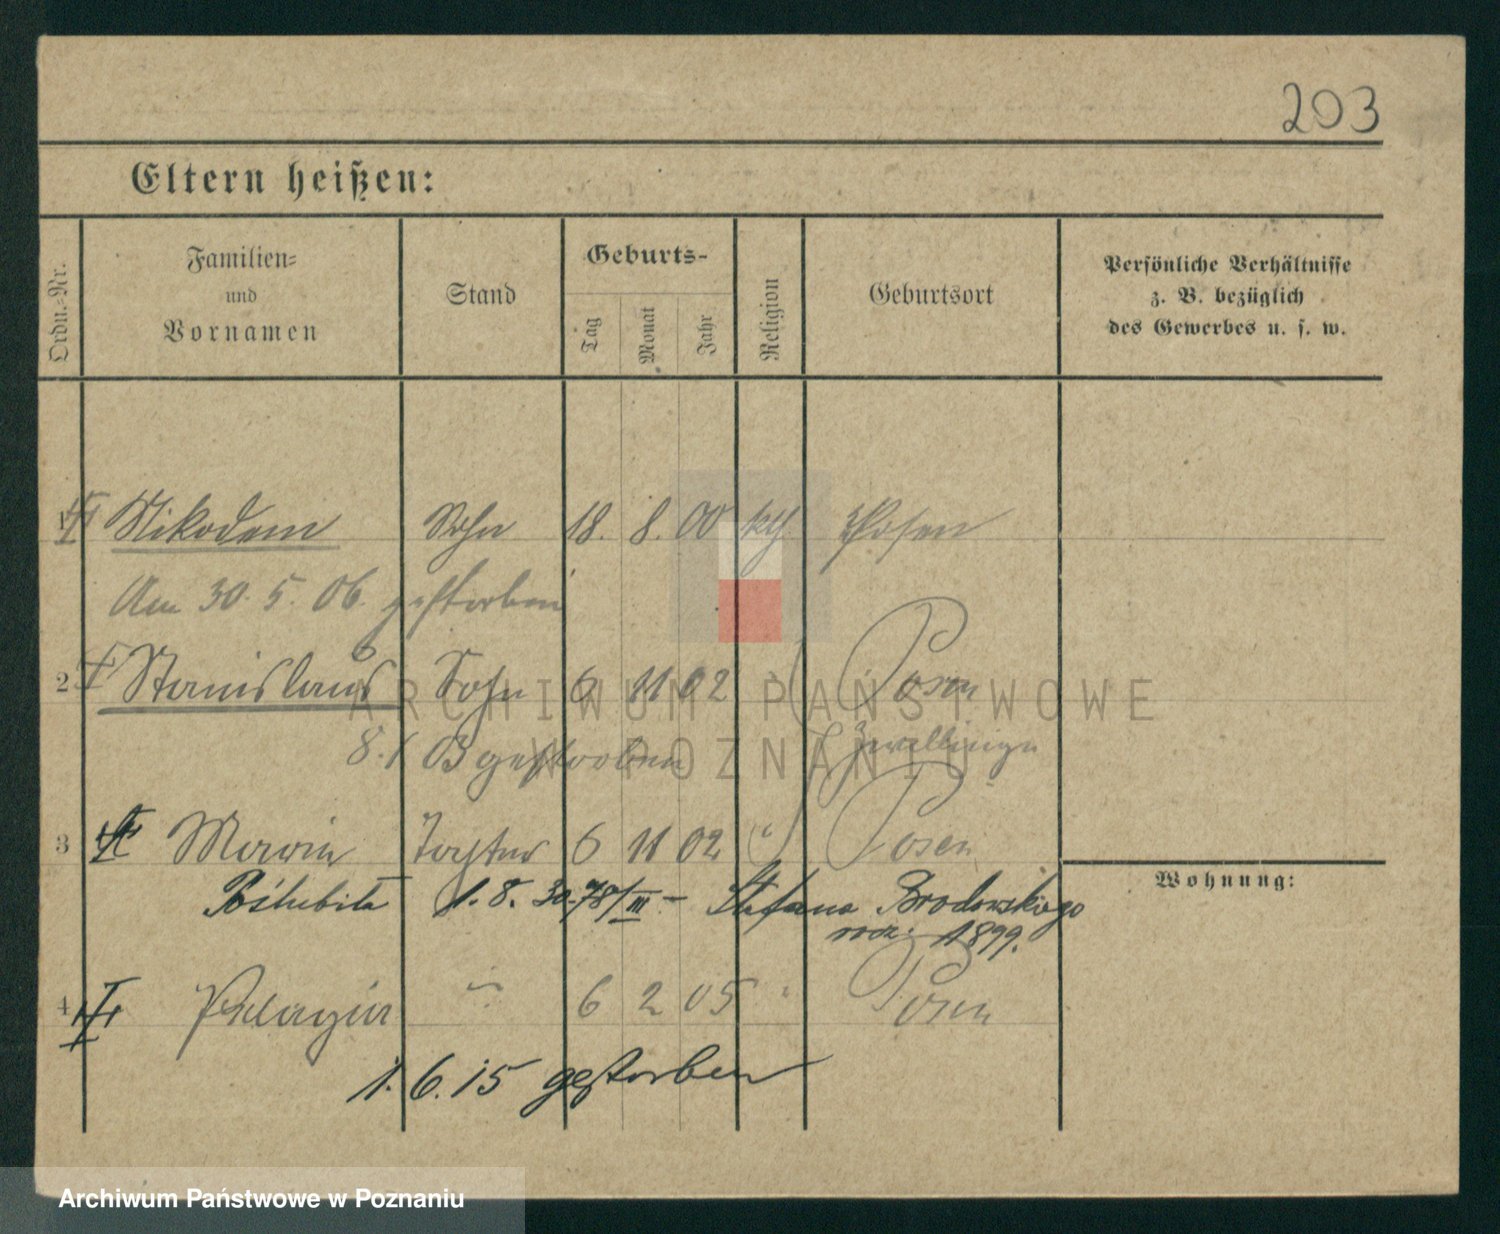 203
Eltern heißen:
Ordn.-Nr.
Familien=
und
Vornamen
Stand
Geburts-
Tag
Monat
Jahr
Religion
Geburtsort
Persönliche Verhältnisse
z. B. bezüglich
des Gewerbes u. s. w.
1 Nikodem Sohn 18. 8. 00 kth. Posen
Am 30. 5. 06. gestorben
2 Stanislaus Sohn 6 11 02 Posen
8. 1 gestorben Zwillinge
3 Tochter 6 11 02 " Posen
Wohnung:
1. 8. 30. 78/III - Stefana Brodowskiego
rodz. 1899.
4 Pelagia " 6 2 05 " Posen
1. 6. 15 gestorben
ARCHIWUM PAŃSTWOWE
W POZNANIU
Archiwum Państwowe w Poznaniu